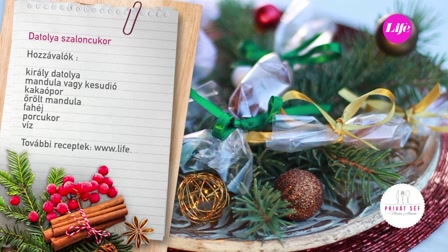 Datolya szaloncukor
Hozzávalók :
király datolya
mandula vagy kesudió
kakaópor
őrölt mandula
fahéj
porcukor
víz
További receptek: www.life.
Life
PRIVÁT SÉF